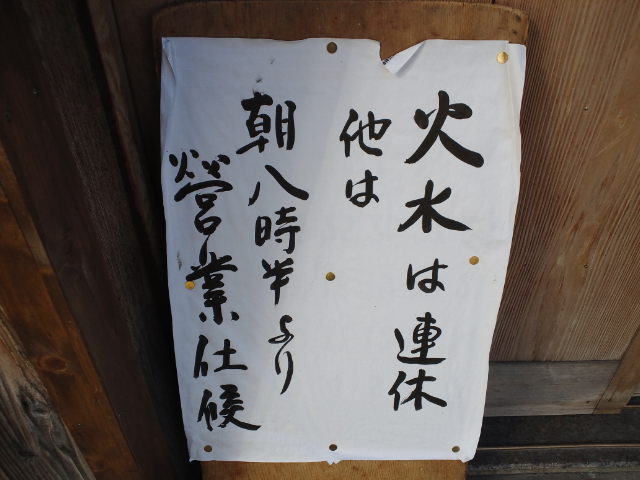 火水は連休
他は
朝八時半より
營業仕候